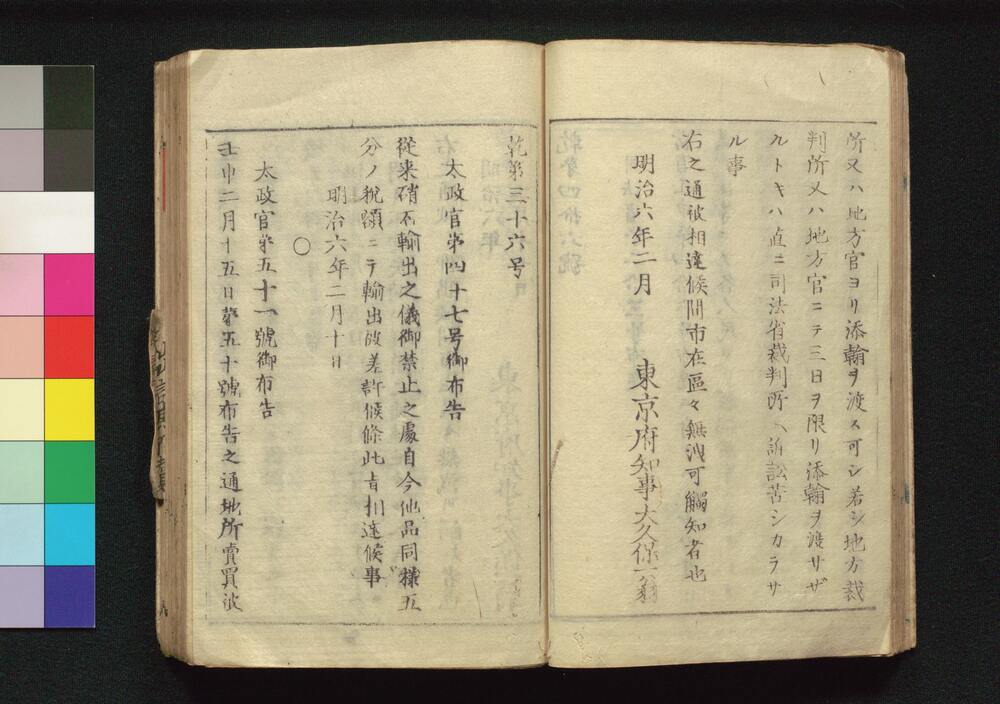 所又ハ地方官ヨリ添翰ヲ渡ス可シ若シ地方裁
判所又ハ地方官ニテ三日ヲ限リ添翰ヲ渡サザ
ルトキハ直ニ司法省裁判所ヘ訴訟苦シカラサ
ル事
右之通被相達候間市在區々無洩可觸知者也
明治六年二月　東京府知事大久保一翁
乾第三十六号
太政官第四十七号御布告
従来硝石輸出之儀御禁止之處自今他品同様五
分ノ税額ニテ輸出被差許候條此旨相達候事
明治六年二月十日
〇
太政官第五十一號御布告
壬申二月十五日第五十號布告之通地所賣買被